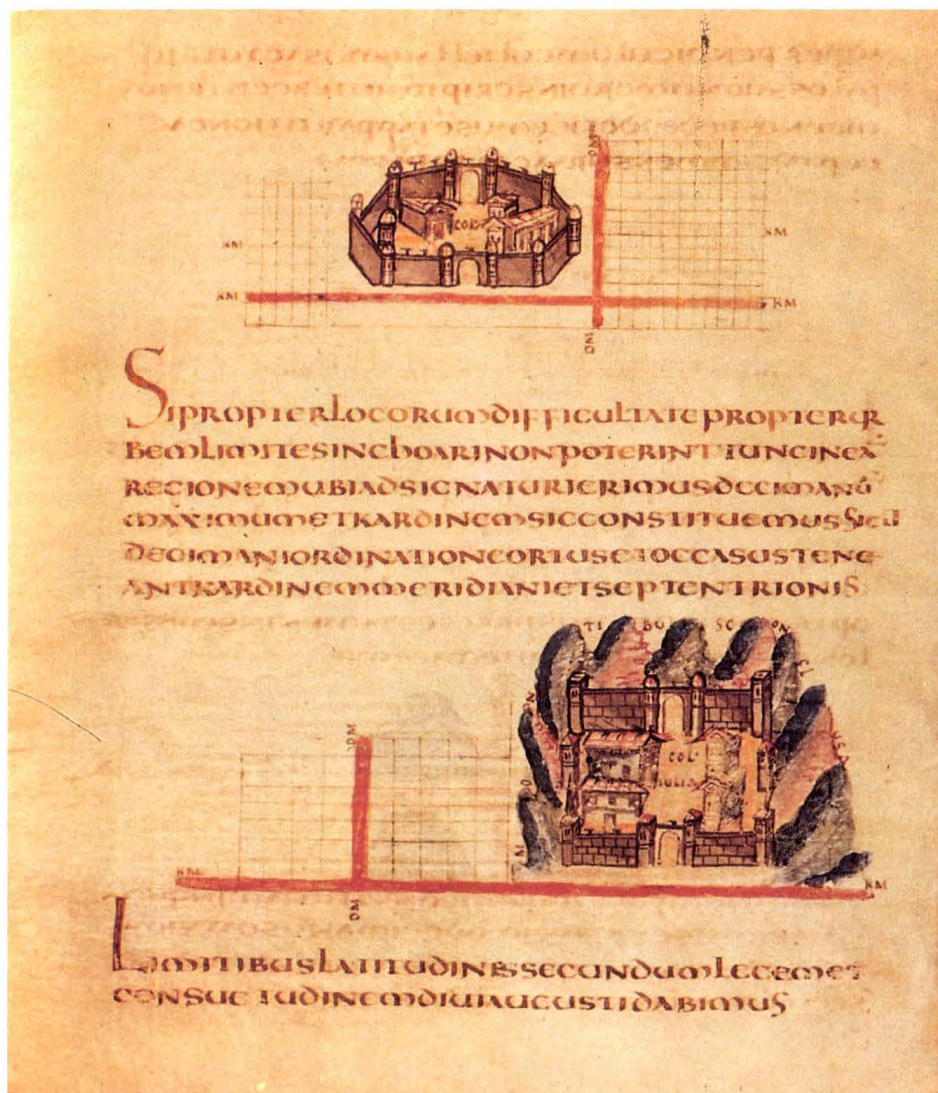 DM
COL
KM
KM
KM
KM
DM
SIPROPTERLOCORUMDIFFICULTATEPROPTERUR
BEMLIMITESINCHOARINONPOTERINTTUNCINEA
REGIONEMUBIADSIGNATURIERIMUSDECIMANŪ
MAXIMUMETKARDINEMSICCONSTITUEMUSSICUT
DECIMANIORDINATIONEORTUSETOCCASUSTENE
ANTKARDINEMMERIDIANIETSEPTENTRIONIS
DM
COL
IULIA
KM
KM
DM
LIMITIBUSLATITUDINESSECUNDUMLEGEMET
CONSUETUDINEMDIUIAUGUSTIDABIMUS